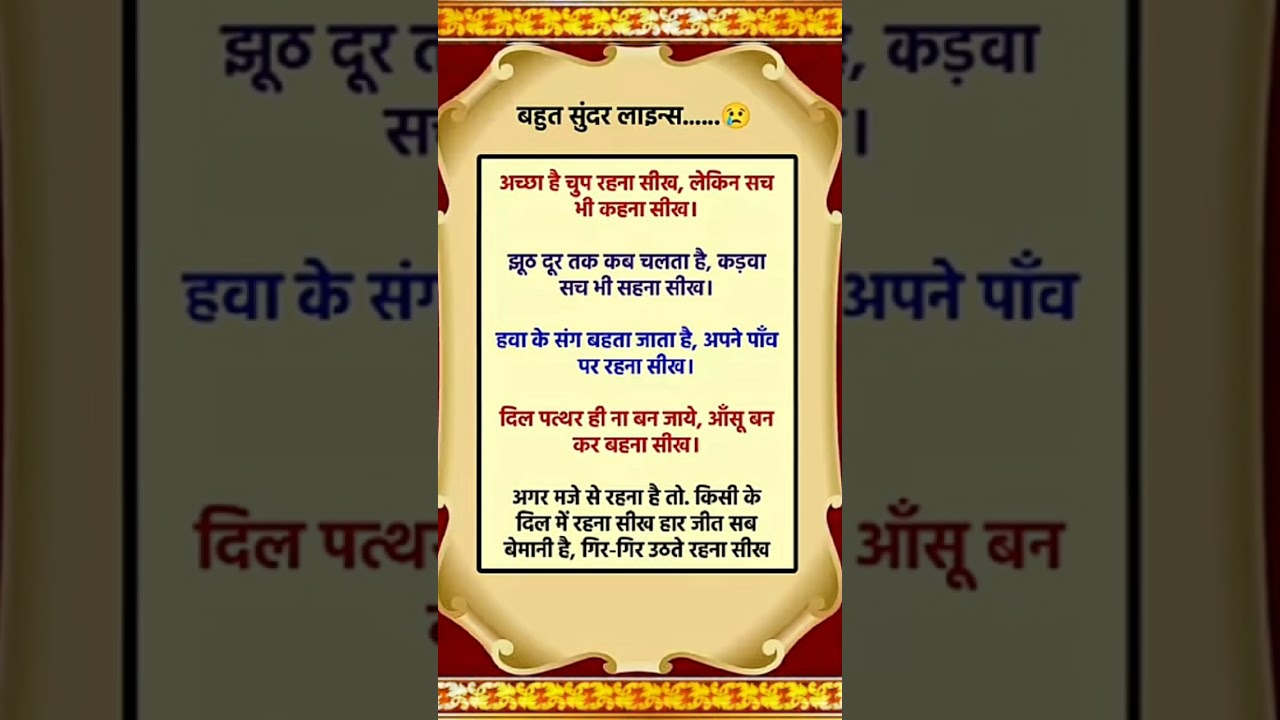 बहुत सुंदर लाइन्स......😢
अच्छा है चुप रहना सीख, लेकिन सच
भी कहना सीख।
झूठ दूर तक कब चलता है, कड़वा
सच भी सहना सीख।
हवा के संग बहता जाता है, अपने पाँव
पर रहना सीख।
दिल पत्थर ही ना बन जाये, आँसू बन
कर बहना सीख।
अगर मजे से रहना है तो. किसी के
दिल में रहना सीख हार जीत सब
बेमानी है, गिर-गिर उठते रहना सीख